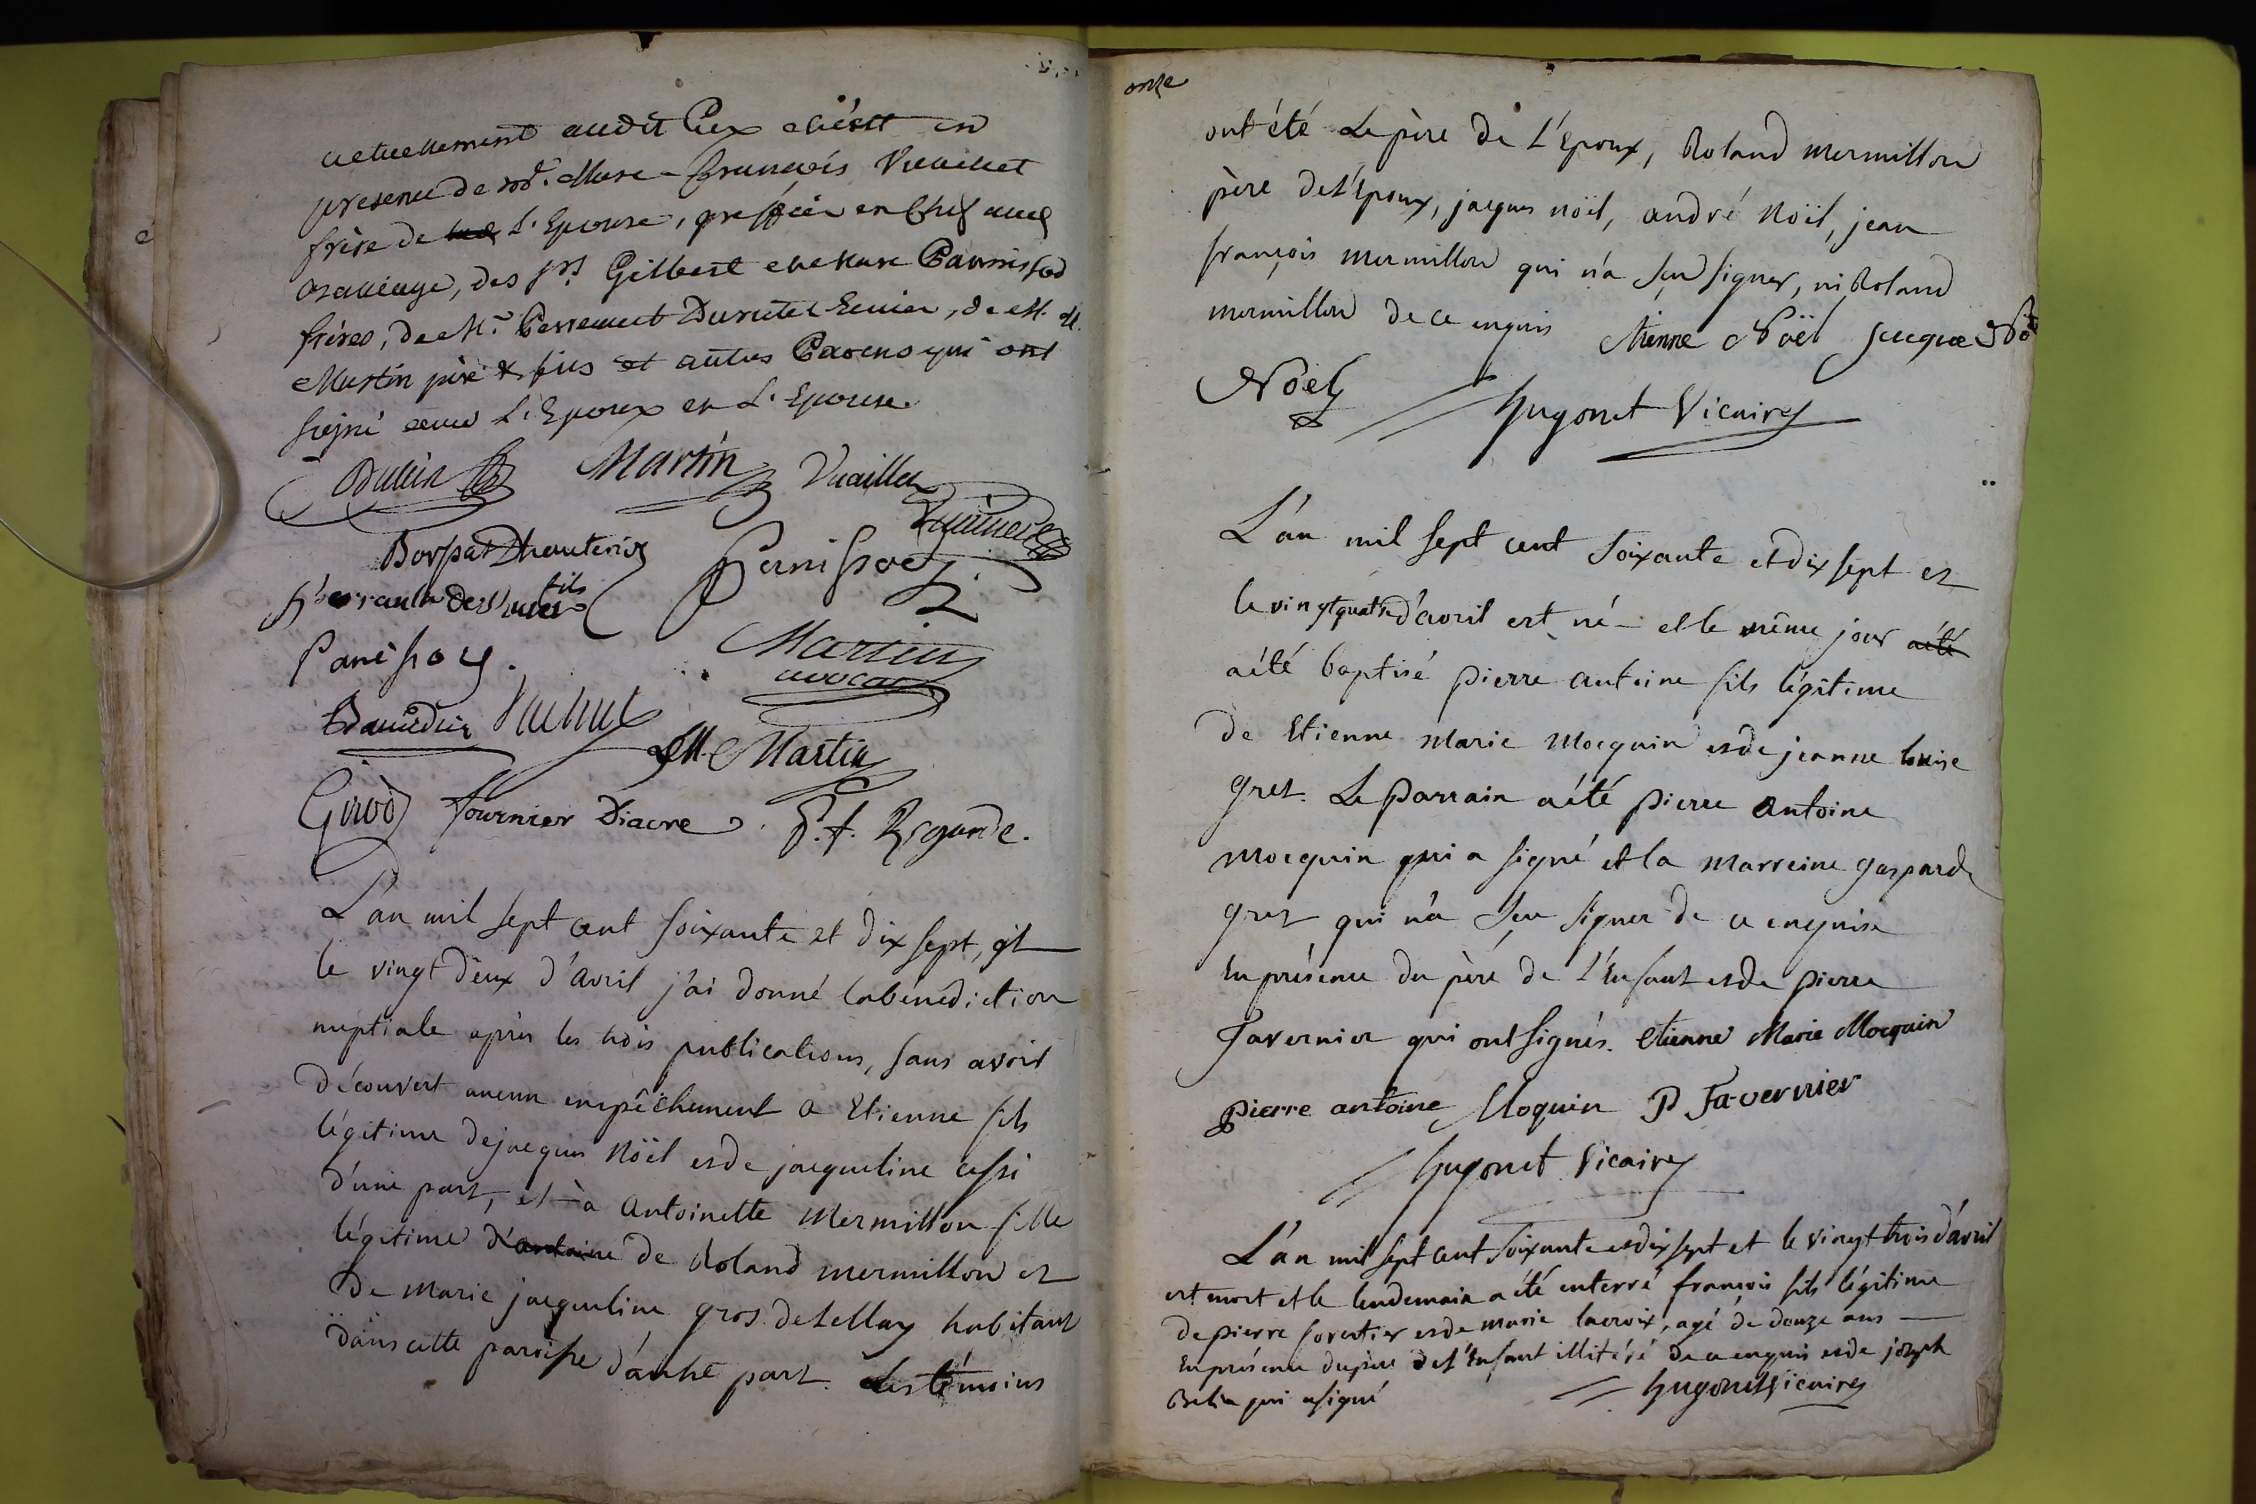 actuellement audit Gex et c'est en
presence de Marc François Vuaillet
frère de L'Epouse, greffier en chef aud
Bailliage, des Srs Gilbert et Panissod
frères, de Mr. Perrault senior, de M. M.
Martin père & fils et autres Parens qui ont
signé avec L'Epoux et L'Epouse.
Martin Vuaillet
Borssat Dhauterive
Panissod
fils
Panissod.
Martin
avocat
Vuaillet
Martin
Girod fournier Diacre
L'an mil sept cent soixante et dix sept, et
le vingt deux d'avril j'ai donné la bénédiction
nuptiale après les trois publications, sans avoir
découvert aucun empêchement a Etienne fils
légitime de jacques Noël et de jacqueline
d'une part, et à Antoinette Mermillon fille
légitime d'antoine de Roland mermillon et
de marie jacqueline gros de Lellay habitant
dans cette paroisse d'autre part. Les témoins
onze
ont été Le père de L'Epoux, Roland mermillon
père de L'Epoux, jacques noël, andré Noël, jean
françois mermillon qui n'a sçu signer, ni Roland
mermillon de ce enquis Etienne Noël jacque No
Noël
hugonet Vicaire
L'an mil sept cent soixante et dix sept et
le vingt quatre d'avril est né et le même jour aété
aété baptisé pierre antoine fils légitime
de Etienne Marie Mocquin et de jeanne louise
gret. Le parrain aété pierre Antoine
Mocquin qui a signé et la marreine gasparde
gret qui n'a sçu signer de ce enquise
En présence du père de l'Enfant et de pierre
Tavernier qui ont signés. Etienne Marie Mocquin
pierre antoine Moquin P Tavernier
hugonet Vicaire
L'an mil sept cent soixante et dix sept et le vingt trois d'avril
est mort et le lendemain a été enterré françois fils légitime
de pierre forestier et de marie lacroix, agé de douze ans
En présence du père de l'Enfant illitéré de ce enquis et de joseph
qui a signé hugonet Vicaire